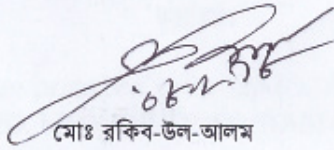 মোঃ রকিব-উল-আলম